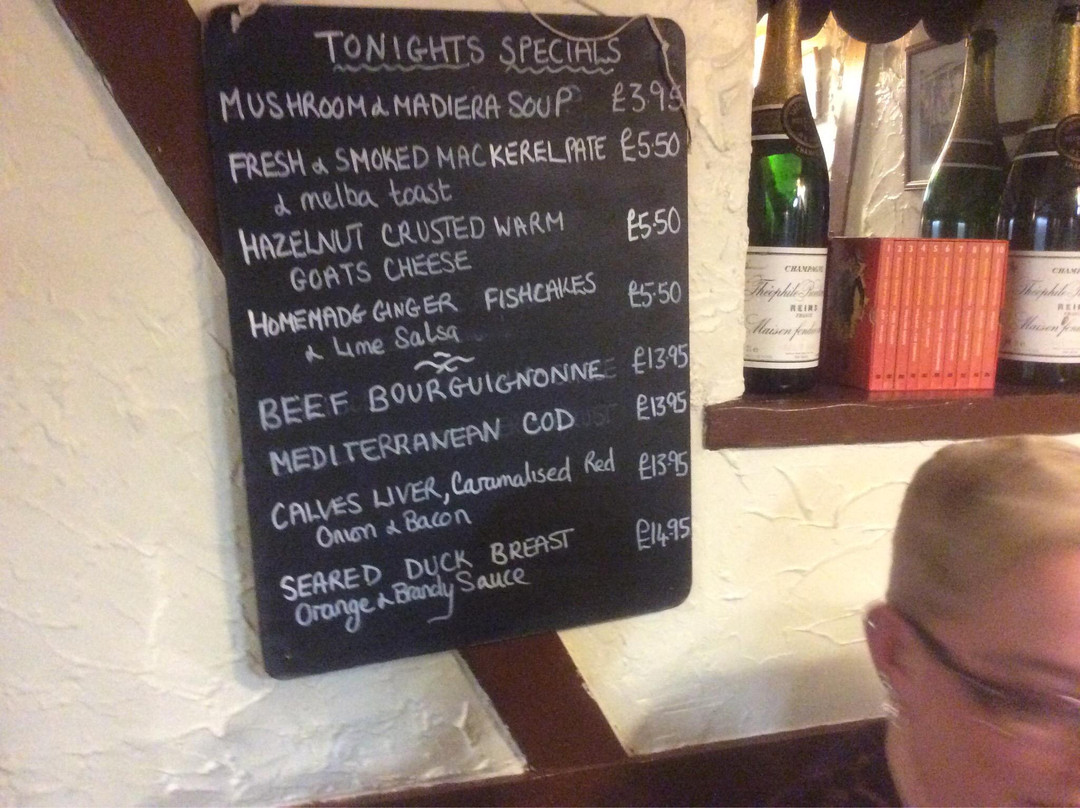 TONIGHTS SPECIALS
MUSHROOM & MADIERA SOUP £3.95
FRESH & SMOKED MACKEREL PATE £5.50
& melba toast
HAZELNUT CRUSTED WARM £5.50
GOATS CHEESE
HOMEMADE GINGER FISHCAKES £5.50
& Lime Salsa
BEEF BOURGUIGNONNE £13.95
MEDITERRANEAN COD £13.95
CALVES LIVER, Caramalised Red £13.95
Onion & Bacon
SEARED DUCK BREAST £14.95
Orange & Brandy Sauce
CHAMPAGNE
Théophile
REIMS
Maison
CHAM
Théophile
REIMS
Maison